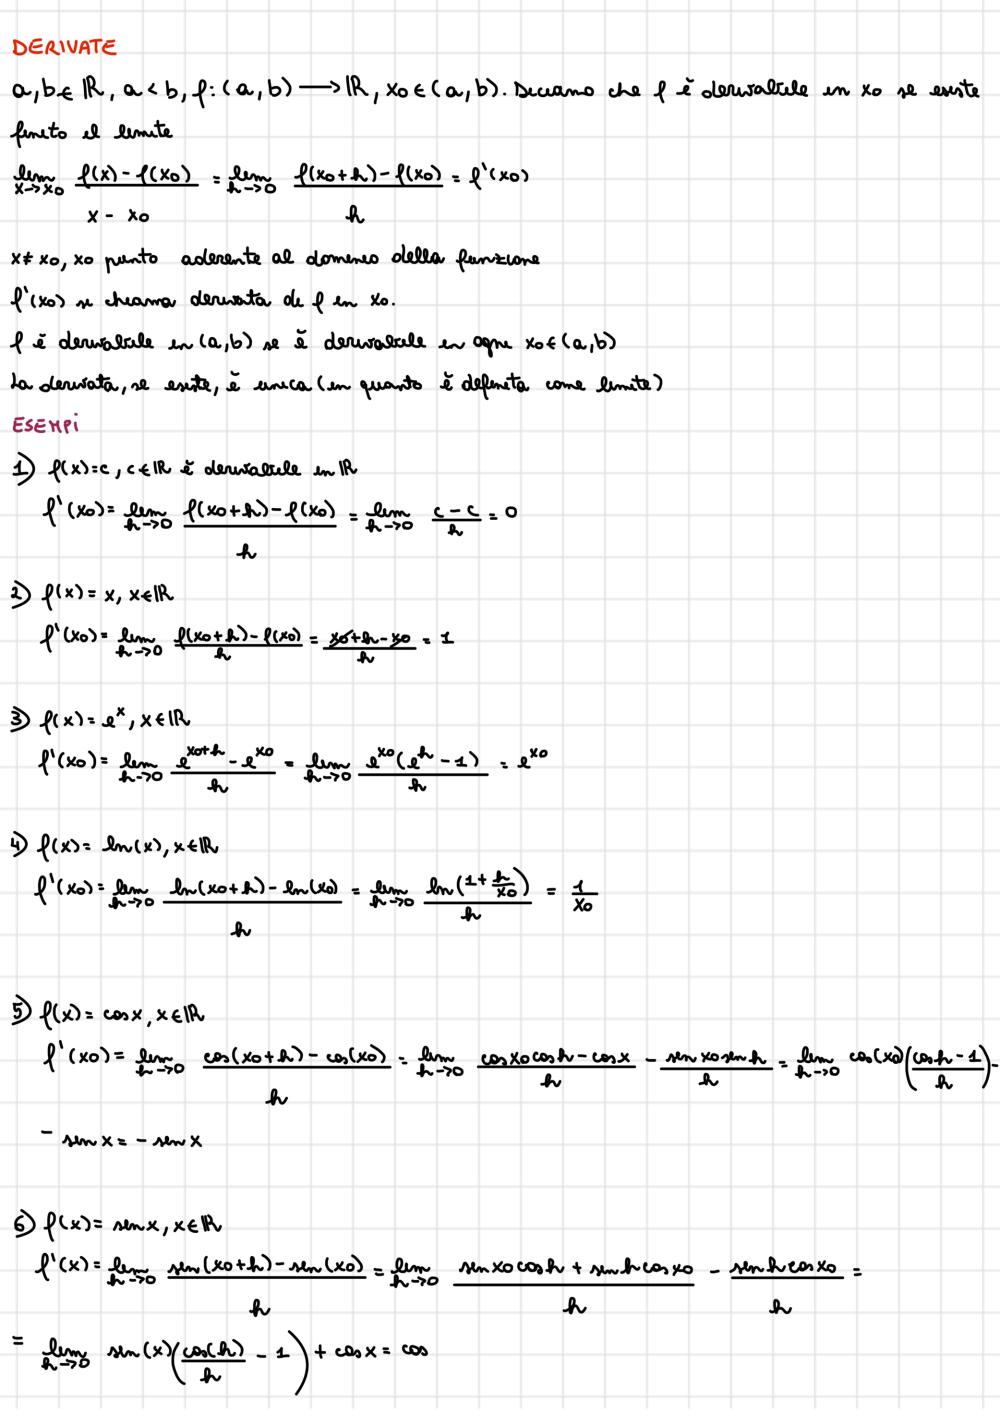 DERIVATE
a, b ∈ ℝ, a < b, f: (a, b) ⟶ ℝ, x₀ ∈ (a, b). Diciamo che f è derivabile in x₀ se esiste
finito il limite
lim_{x→x₀} (f(x) - f(x₀))/(x - x₀) = lim_{h→0} (f(x₀+h) - f(x₀))/h = f'(x₀)
x ≠ x₀, x₀ punto aderente al dominio della funzione
f'(x₀) si chiama derivata di f in x₀.
f è derivabile in (a, b) se è derivabile in ogni x₀ ∈ (a, b)
La derivata, se esiste, è unica (in quanto è definita come limite)
ESEMPI
1) f(x) = c, c ∈ ℝ è derivabile in ℝ
f'(x₀) = lim_{h→0} (f(x₀+h) - f(x₀))/h = lim_{h→0} (c - c)/h = 0
2) f(x) = x, x ∈ ℝ
f'(x₀) = lim_{h→0} (f(x₀+h) - f(x₀))/h = (x₀ + h - x₀)/h = 1
3) f(x) = e^x, x ∈ ℝ
f'(x₀) = lim_{h→0} (e^{x₀+h} - e^{x₀})/h = lim_{h→0} (e^{x₀}(e^h - 1))/h = e^{x₀}
4) f(x) = ln(x), x ∈ ℝ
f'(x₀) = lim_{h→0} (ln(x₀+h) - ln(x₀))/h = lim_{h→0} ln(1 + h/x₀)/h = 1/x₀
5) f(x) = cos x, x ∈ ℝ
f'(x₀) = lim_{h→0} (cos(x₀+h) - cos(x₀))/h = lim_{h→0} (cos x₀ cos h - cos x)/h - (sen x₀ sen h)/h = lim_{h→0} cos(x₀)((cos h - 1)/h) -
- sen x = - sen x
6) f(x) = sen x, x ∈ ℝ
f'(x) = lim_{h→0} (sen(x₀+h) - sen(x₀))/h = lim_{h→0} (sen x₀ cos h + sen h cos x₀)/h - (sen h cos x₀)/h =
= lim_{h→0} sen(x)(cos(h)/h - 1) + cos x = cos